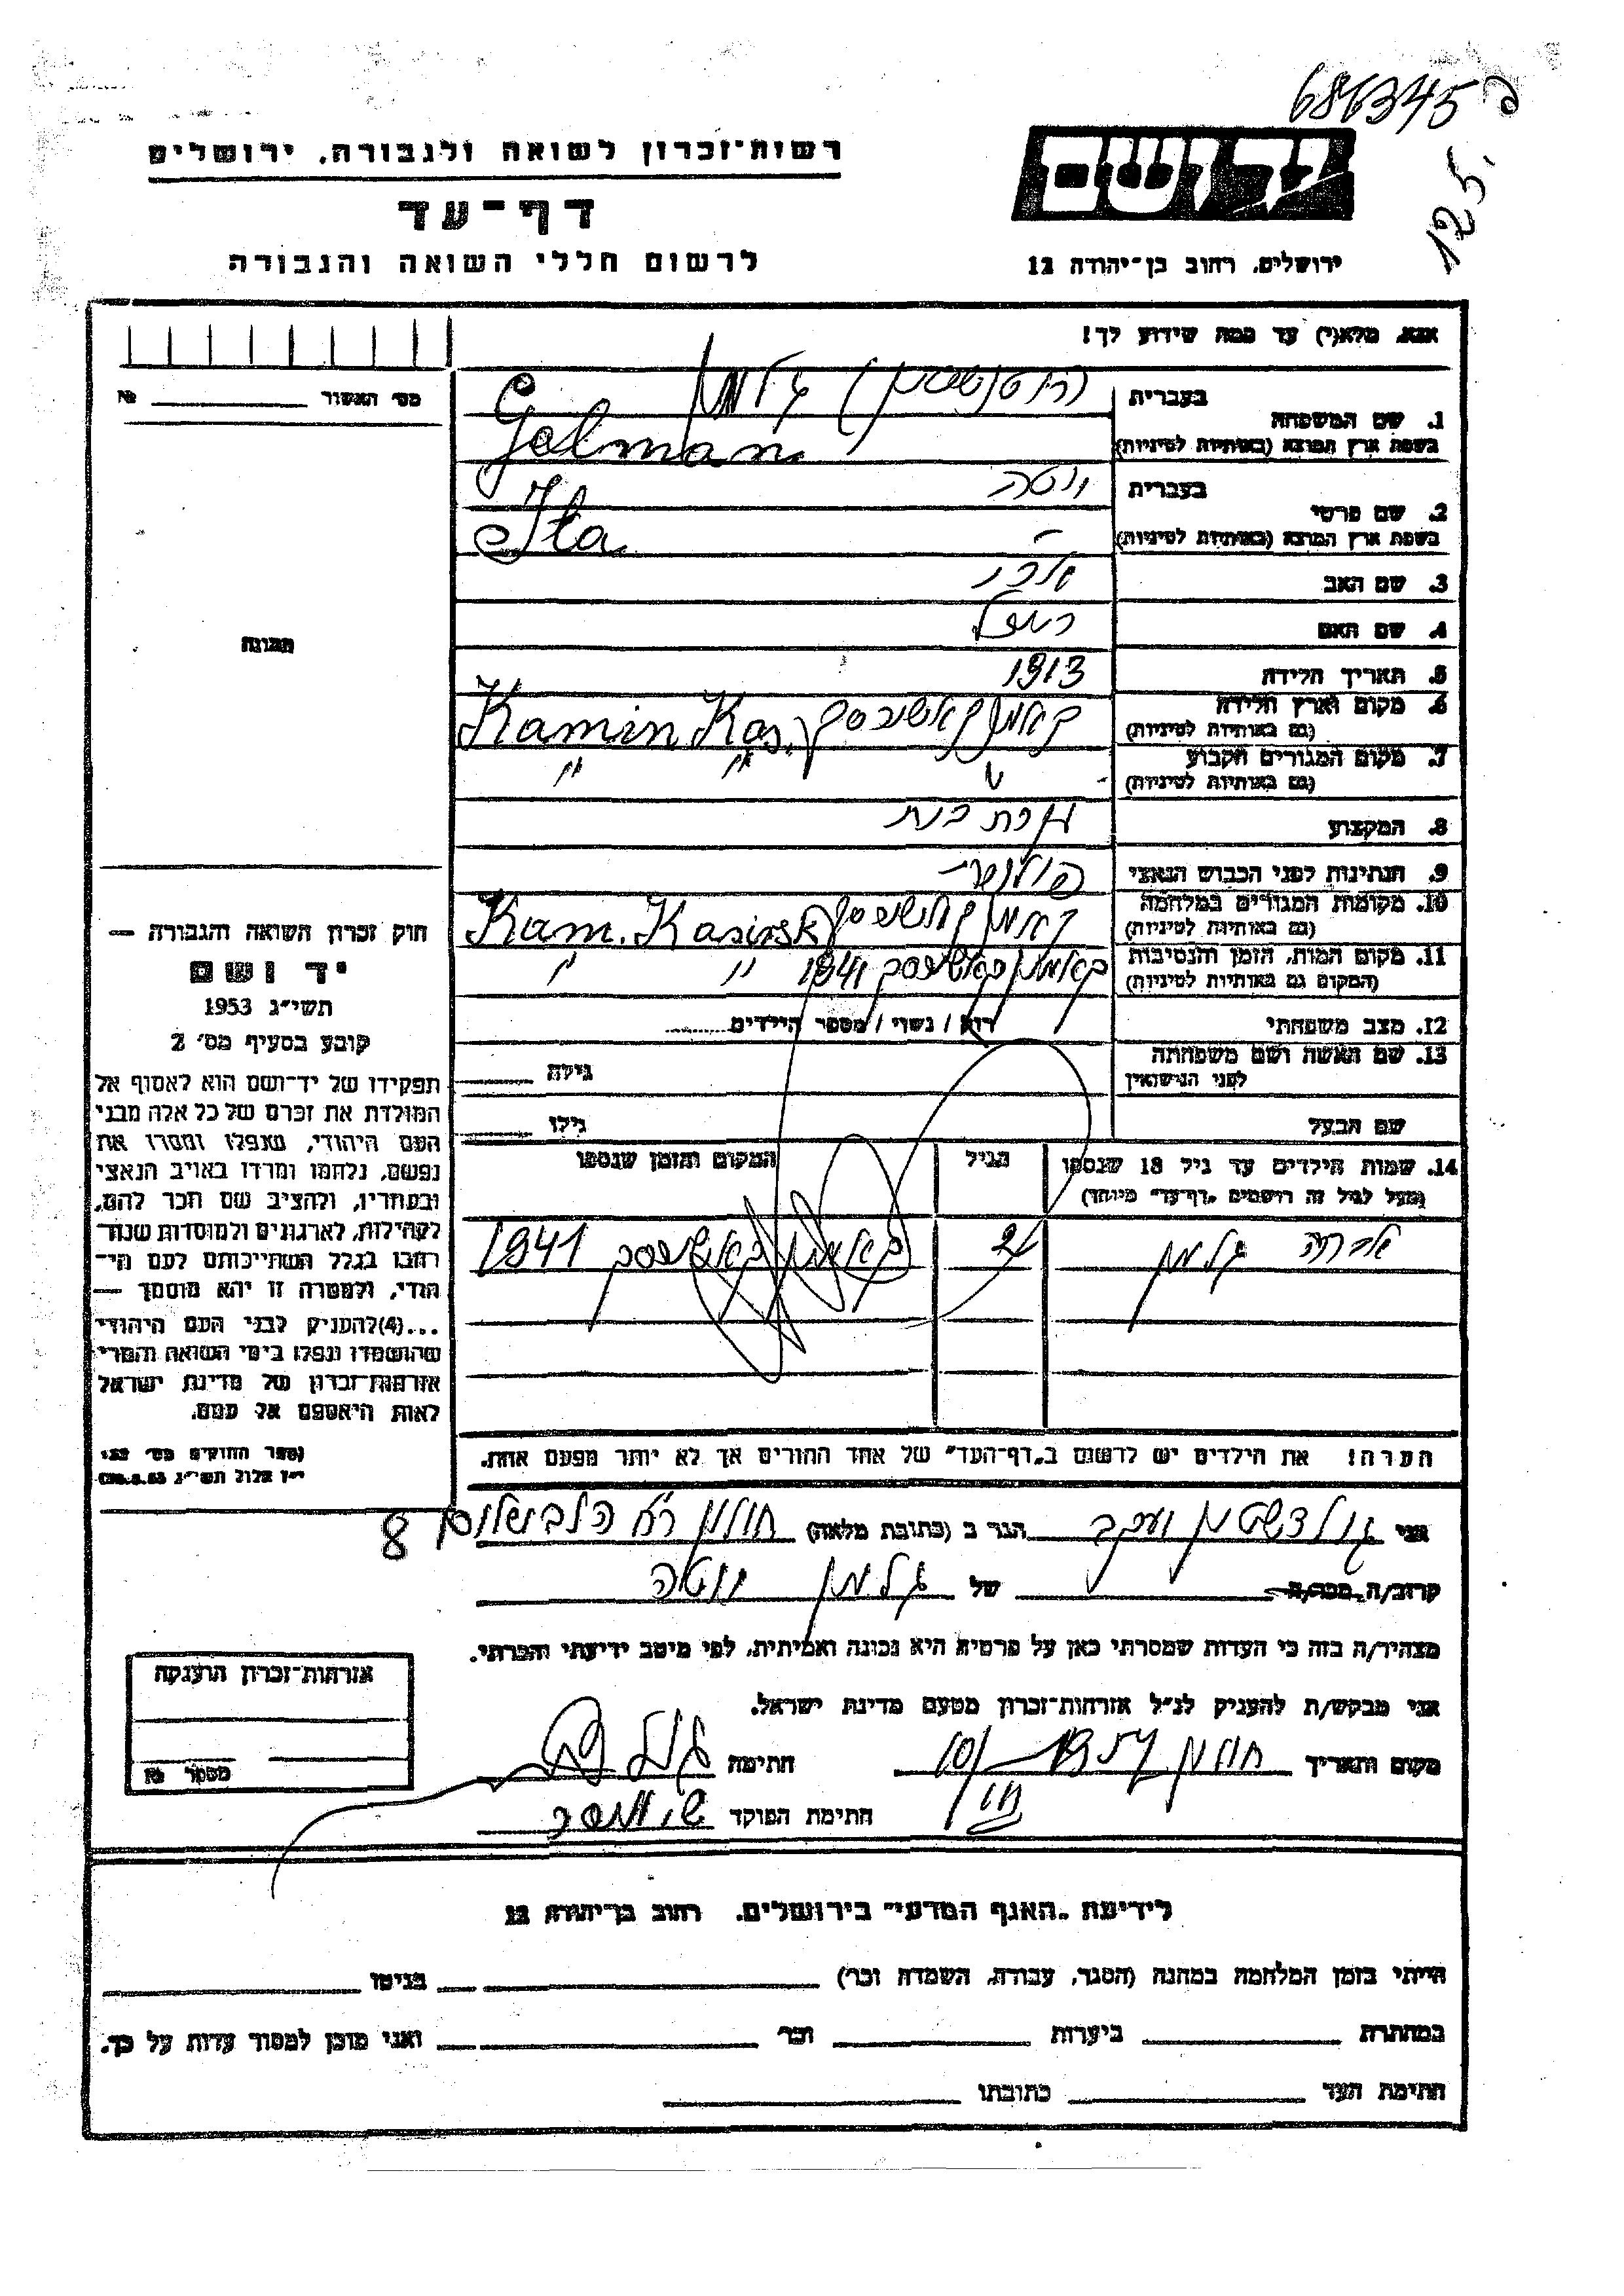 686345
125.
רשות־זכרון לשואה ולגבורה, ירושלים
דף־עד
לרשום חללי השואה והגבורה
ירושלים, רחוב בן־יהודה 12
אנא, מלא(י) עד כמה שידוע לך!
מס׳ האשור № 
תמונה
חוק זכרון השואה והגבורה —
יד ושם
תשי״ג 1953
קובע בסעיף מס׳ 2
תפקידו של יד־ושם הוא לאסוף אל
המולדת את זכרם של כל אלה מבני
העם היהודי, שנפלו ומסרו את
נפשם, נלחמו ומרדו באויב הנאצי
ובעוזריו, ולהציב שם וזכר להם,
לקהילות, לארגונים ולמוסדות שנח־
רבו בגלל השתייכותם לעם הי־
הודי, ולמטרה זו יהא מוסמך —
...(4) להעניק לבני העם היהודי
שהושמדו ונפלו בימי השואה והמרי
אזרחות־זכרון של מדינת ישראל
לאות היאספם אל עמם.
(ספר החוקים מס׳ 132
י״ז אלול תשי״ג 28.8.53)
1. שם המשפחה בעברית גלמן
בשפת ארץ המוצא (באותיות לטיניות) Gelman
2. שם פרטי בעברית ויטה
בשפת ארץ המוצא (באותיות לטיניות) Ita
3. שם האב
4. שם האם
5. תאריך הלידה 1913
6. מקום וארץ הלידה (גם באותיות לטיניות) קאמין קאשירסק Kamin Kas.
7. מקום המגורים הקבוע (גם באותיות לטיניות) " " "
8. המקצוע עקרת בית
9. הנתינות לפני הכבוש הנאצי פולנית
10. מקומות המגורים במלחמה (גם באותיות לטיניות) קאמין קאשירסק Kam. Kasirsk
11. מקום המות, הזמן והנסיבות (המקום גם באותיות לטיניות) קאמין קאשירסק 1941 " "
12. מצב משפחתי רוק / נשוי / מספר הילדים
13. שם האשה ושם משפחתה לפני הנישואין גילה
שם הבעל גילו
14. שמות הילדים עד גיל 18 שנספו (מעל לגיל זה רושמים „דף־עד״ מיוחד) הגיל המקום והזמן שנספו
גלמן 2 קאמין קאשירסק 1941
הערה! את הילדים יש לרשום ב„דף־העד״ של אחד ההורים אך לא יותר מפעם אחת.
אני גולדשטין יעקב הגר ב (כתובת מלאה) חולון 8
קרוב/ה מכר/ה של גלמן ויטה
מצהיר/ה בזה כי העדות שמסרתי כאן על פרטיה היא נכונה ואמיתית, לפי מיטב ידיעתי והכרתי.
אני מבקש/ת להעניק לנ״ל אזרחות־זכרון מטעם מדינת ישראל.
מקום ותאריך חולון חתימה
חתימת הפוקד
אזרחות־זכרון הוענקה
מספר №
לידיעת „האגף המדעי״ בירושלים, רחוב בן־יהודה 12
הייתי בזמן המלחמה במחנה (הסגר, עבודה, השמדה וכו׳) בגיטו
במחתרת ביערות וכו׳ ואני מוכן למסור עדות על כך.
חתימת העד כתובתו